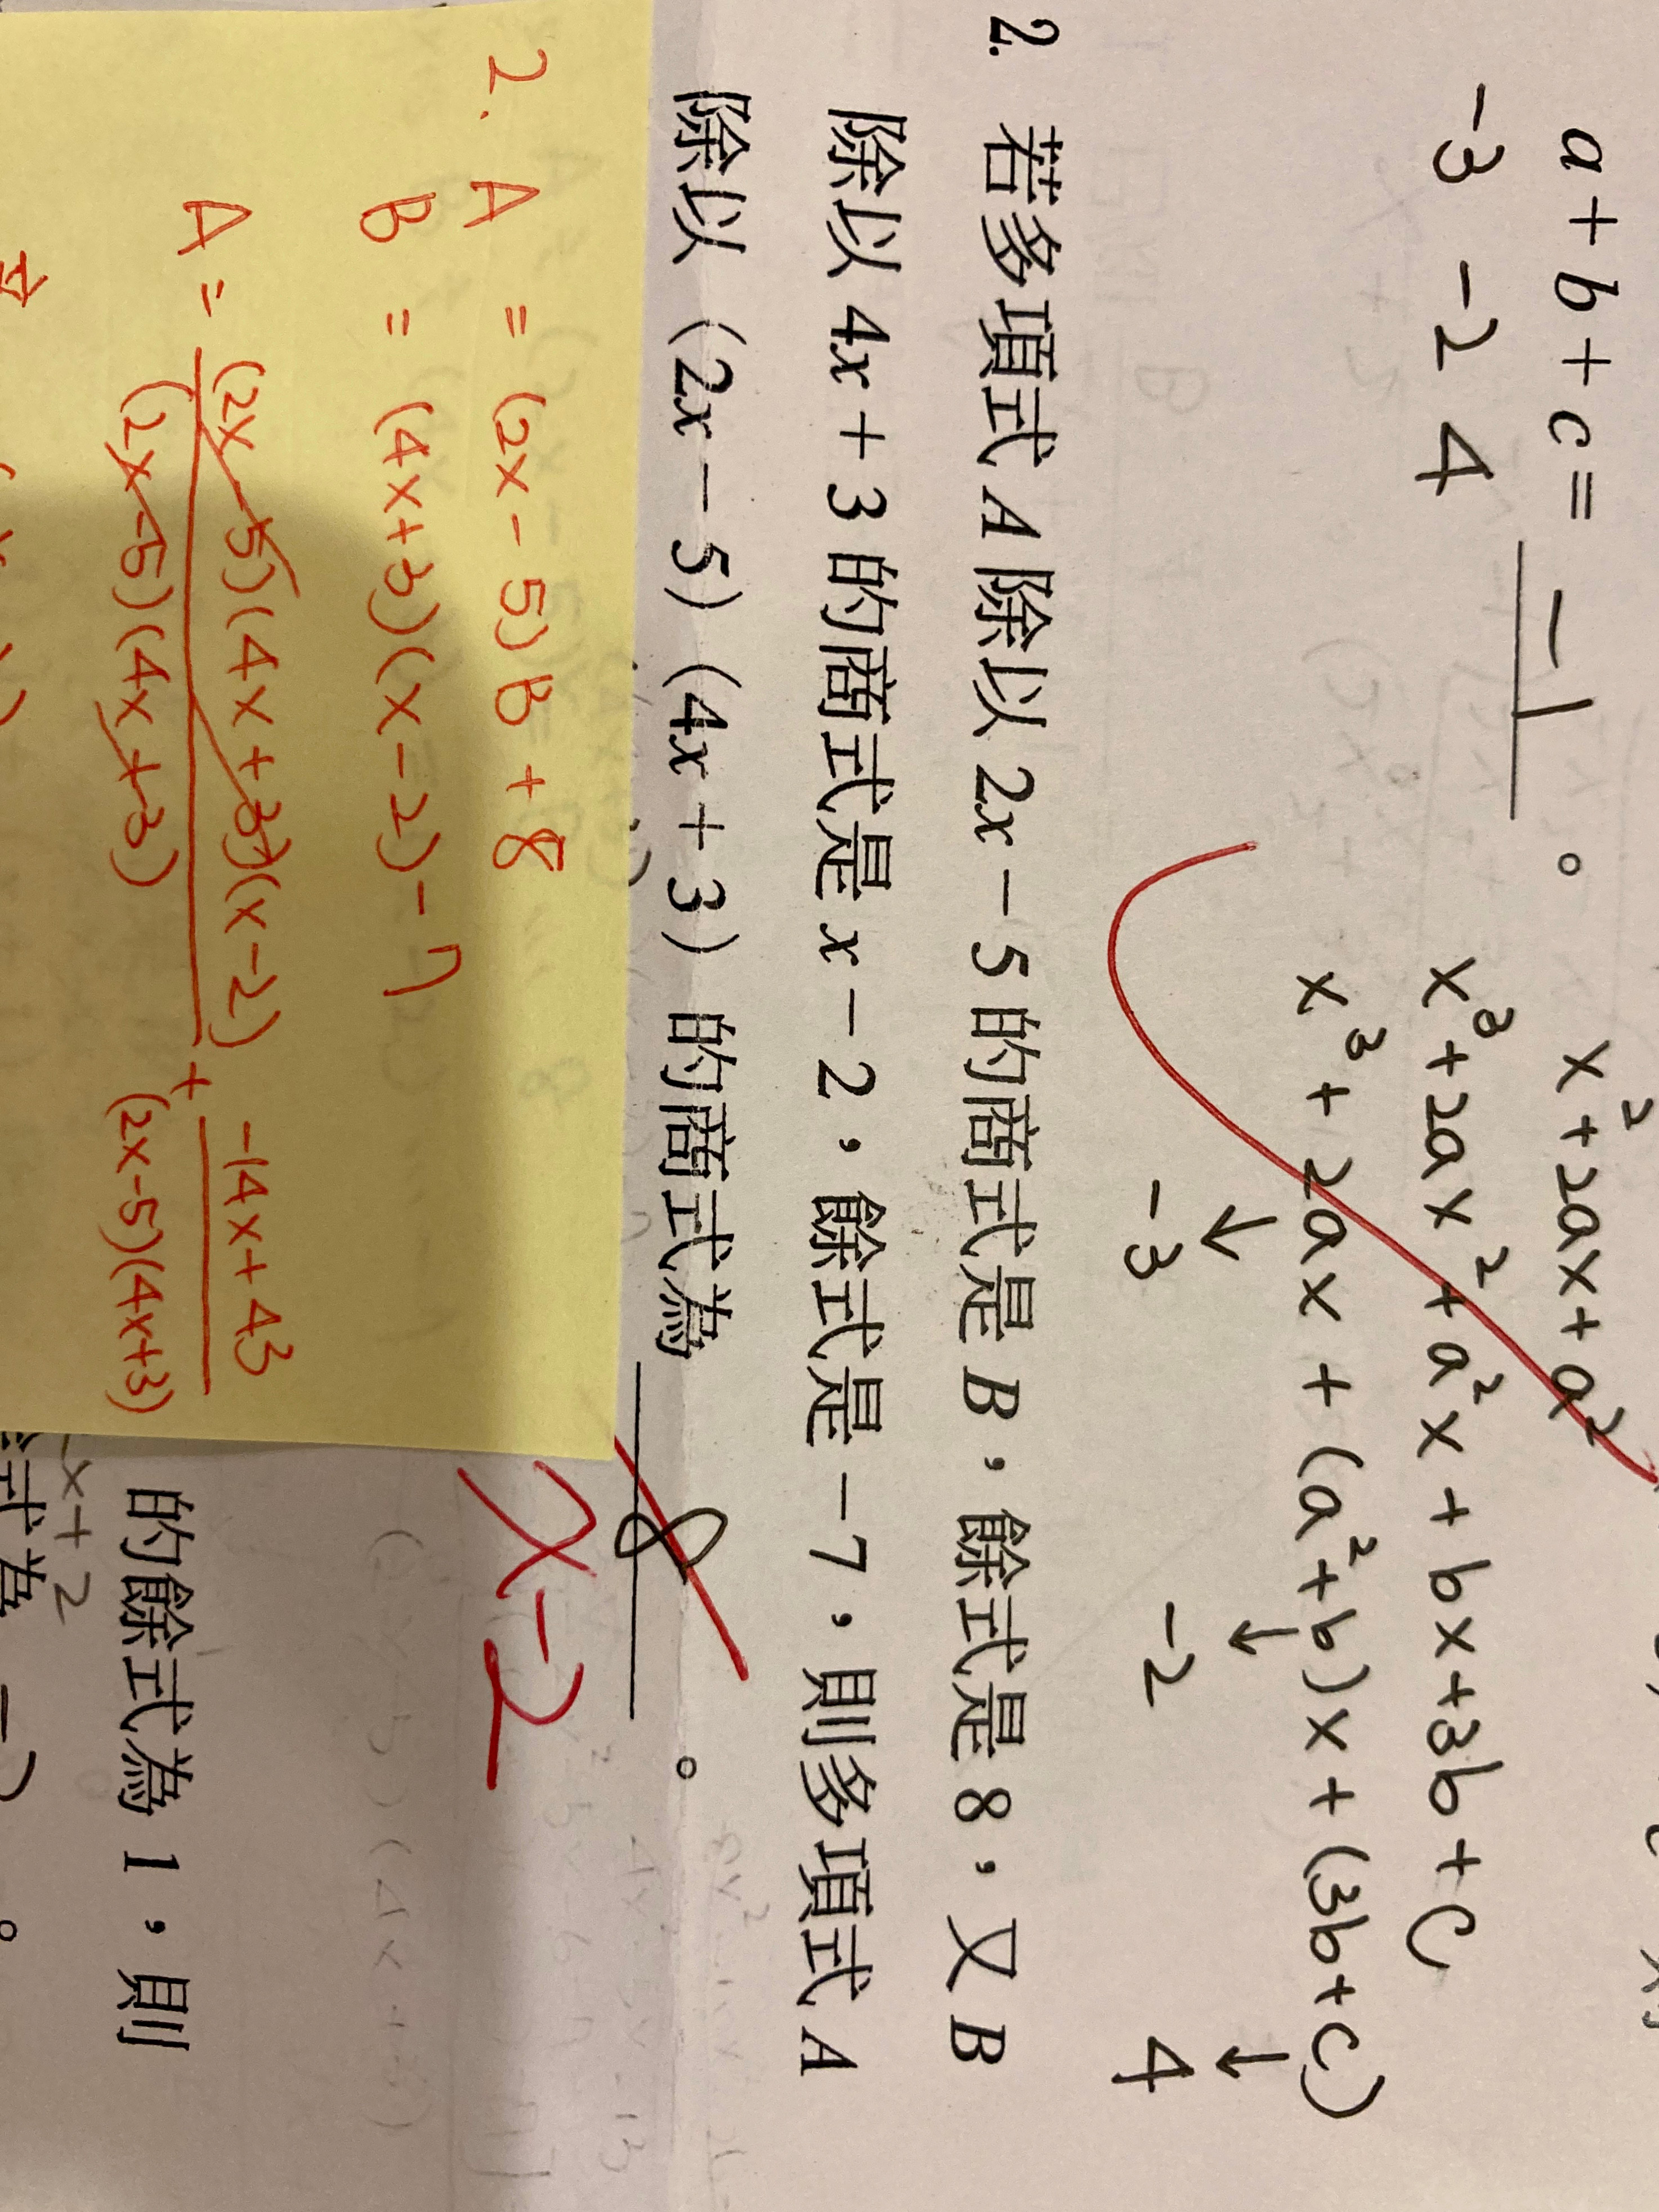 a + b + c = -1 。
-3 -2 4
x²+2ax+a²
x³+2ax²+a²x+bx+3b+c
x³+2ax+(a²+b)x+(3b+c)
↓ ↓ ↓
-3 -2 4
2. 若多項式 A 除以 2x－5 的商式是 B，餘式是 8，又 B
除以 4x＋3 的商式是 x－2，餘式是－7，則多項式 A
除以（2x－5）（4x＋3）的商式為 8 。
x-2
2. A = (2x-5)B+8
B = (4x+3)(x-2)-7
A = (2x-5)(4x+3)(x-2) / (2x-5)(4x+3) + -14x+43 / (2x-5)(4x+3)
的餘式為 1，則
-x+2